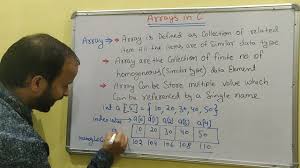 Arrays in C
Array → Array is Defined as Collection of related
item All the items are of Similar data type
→ Array are the Collection of finite no of
homogeneous (Similar type) data Element
→ Array Can Store multiple value which
Can be referenced by a Single name
int a[5] = {10, 20, 30, 40, 50}
index → a[0] a[1] a[2] a[3] a[4]
10 20 30 40 50
102 104 106 108 110